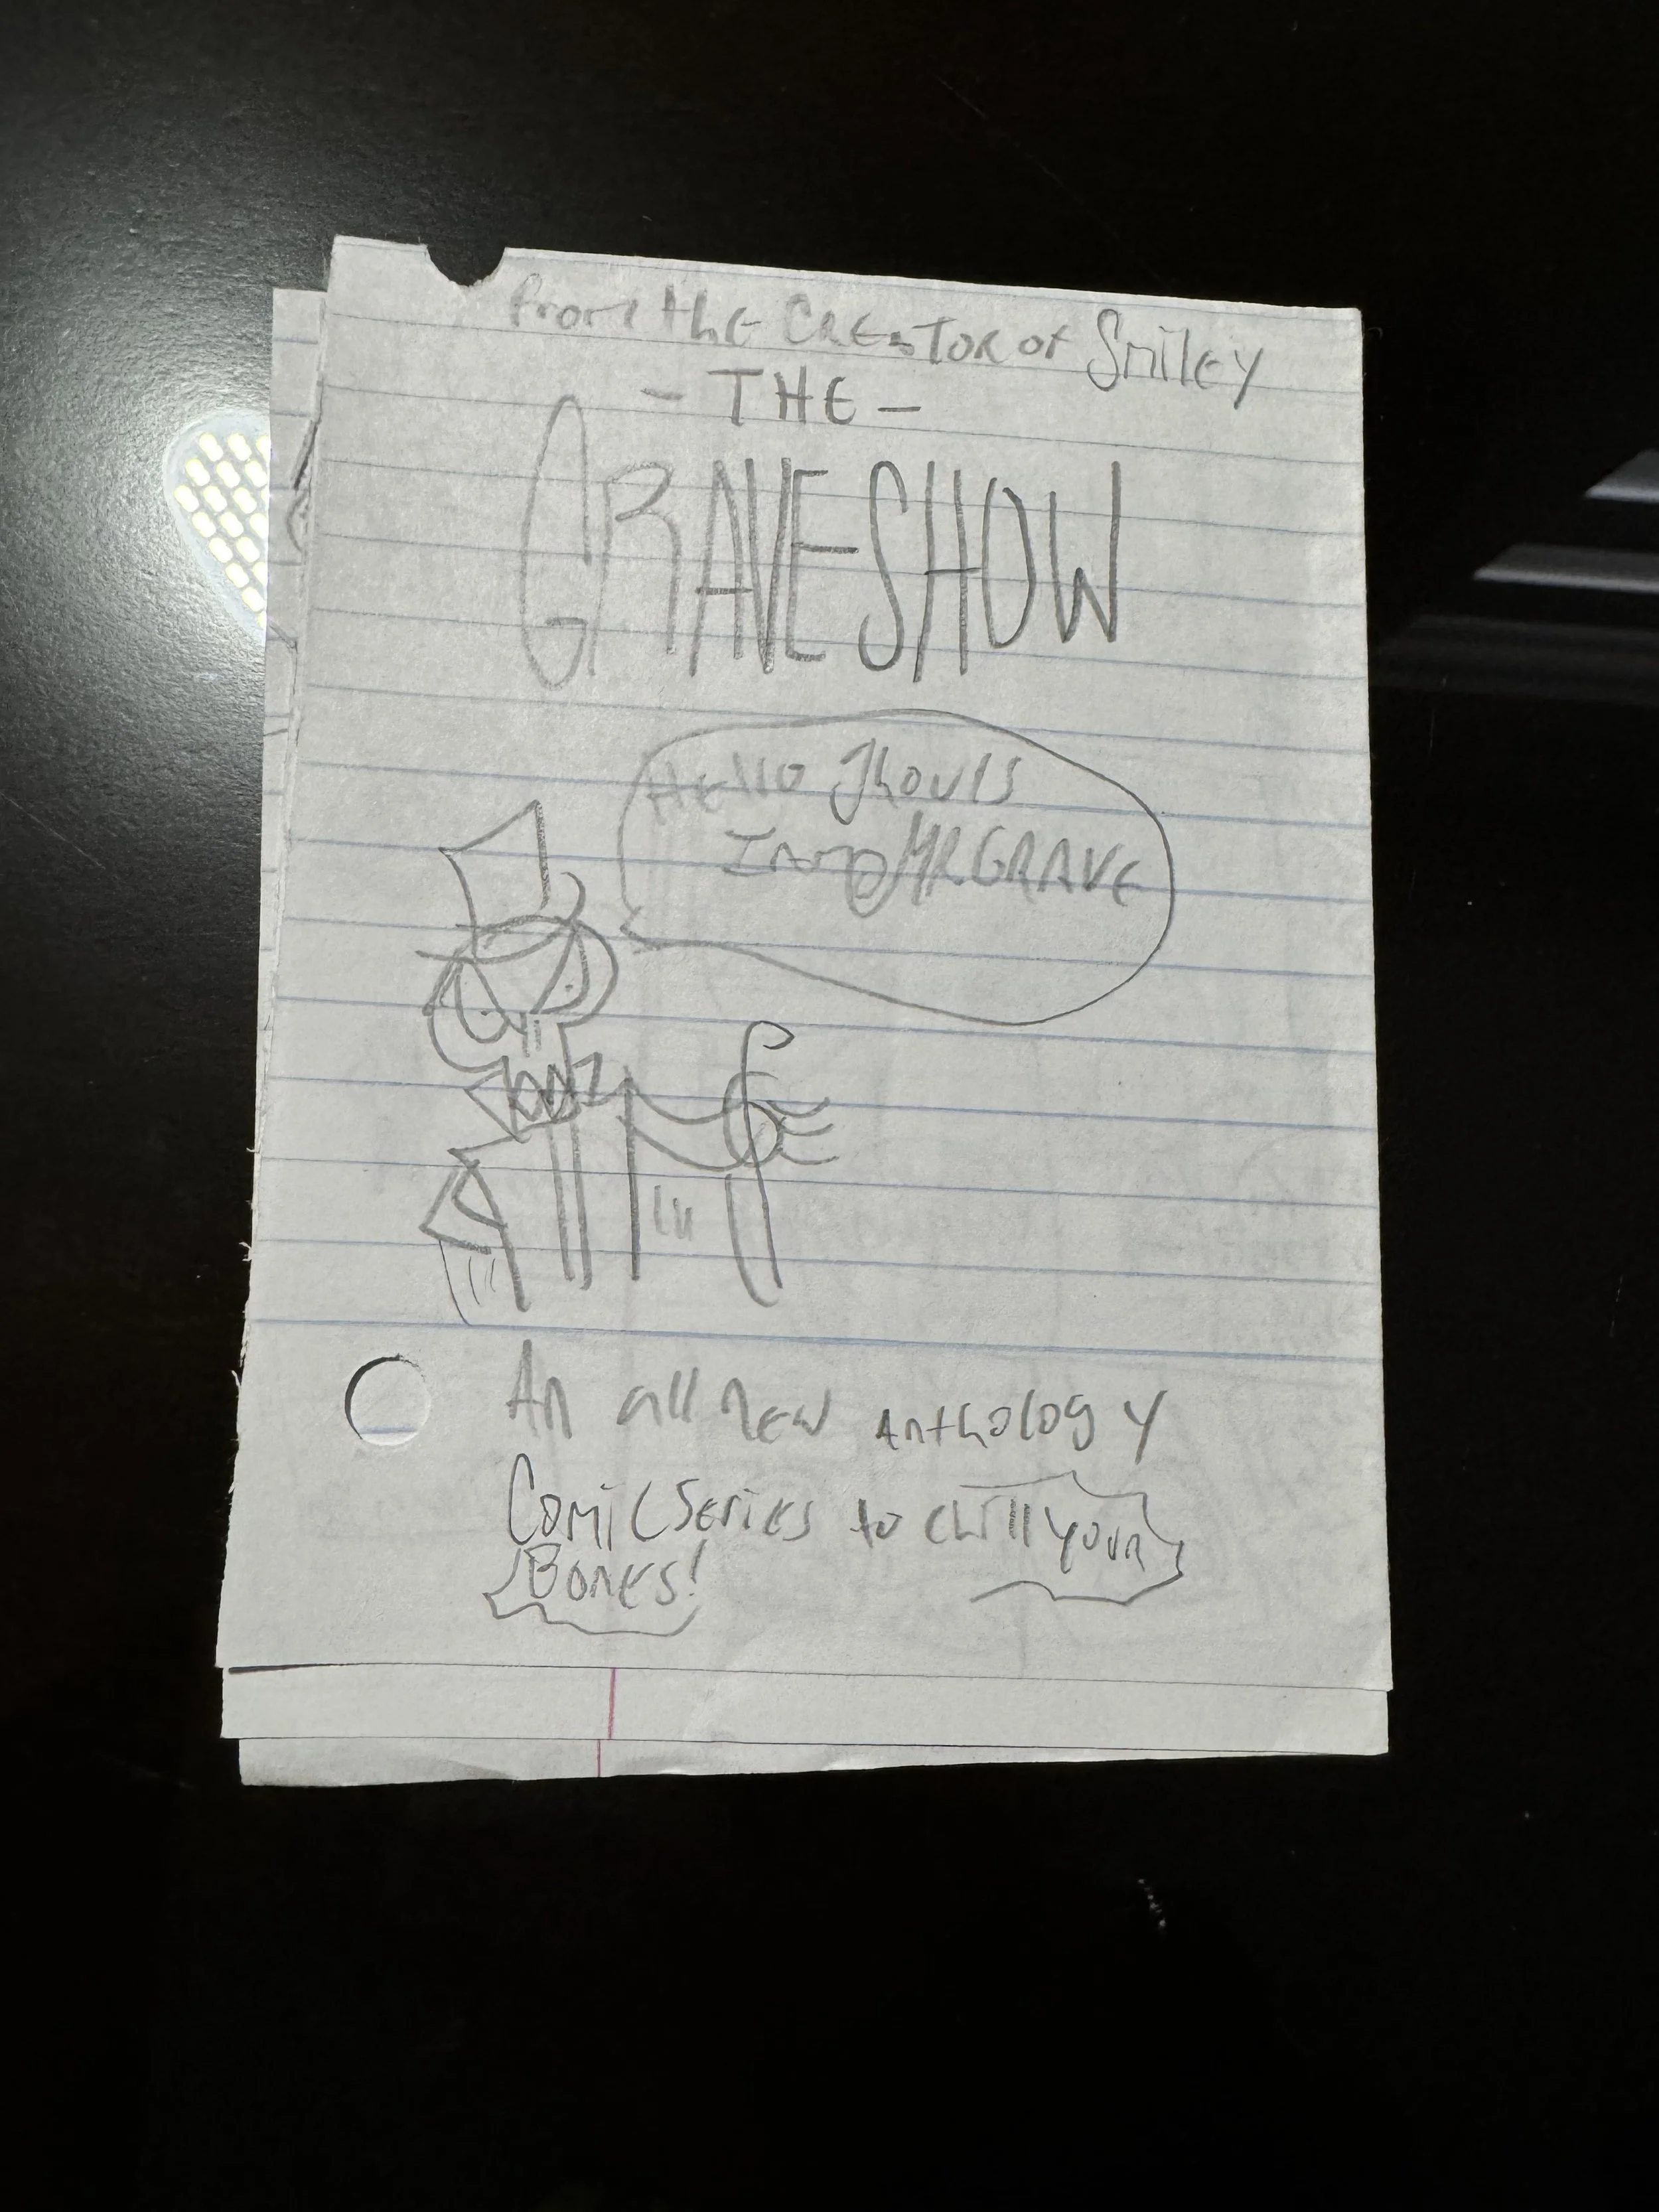 From the CREaTOR of Smiley
- THE -
GRAVESHOW
Hello Ghouls
Im MR GRAVE
An all new Anthology
Comic Series to chill your
Bones!